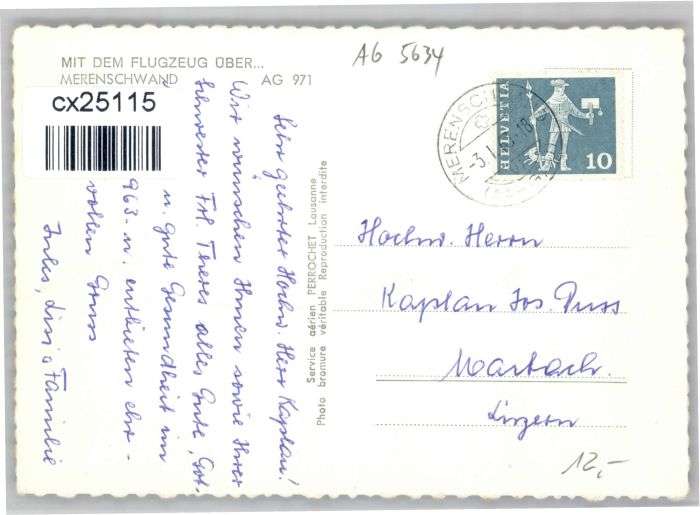 MIT DEM FLUGZEUG ÜBER...
MERENSCHWAND AG 971
cx25115
AG 5634
HELVETIA
10
MERENSCH
-3.1.
18
Sehr geehrter Hochw. Herr Kaplan!
Wir wünschen Ihnen sowie Ihrer
Schwester Frl. Teres alles Gute, Got-
u. gute Gesundheit im
963 - u. entbieten ehr-
vollen Gruss
Jules, Lisi u Familie
Service aérien PERROCHET Lausanne
Photo bromure véritable Reproduction interdite
Hochw. Herrn
Kaplan Jos. Puss
Marbach.
Luzern
12,-